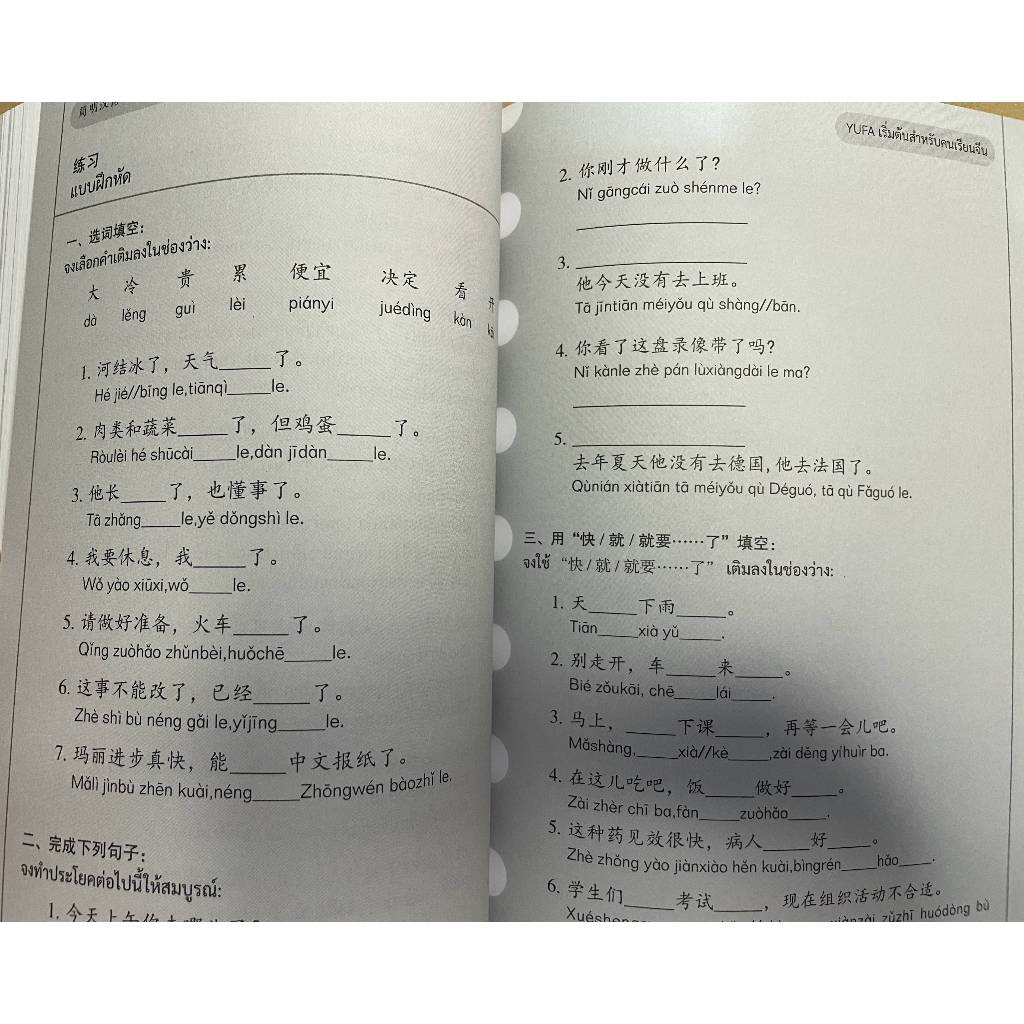 练习
แบบฝึกหัด
一、选词填空：
จงเลือกคำเติมลงในช่องว่าง:
大 冷 贵 累 便宜 决定 看 开
dà lěng guì lèi piányi juédìng kàn
1. 河结冰了，天气_____了。
Hé jié//bīng le,tiānqì_____le.
2. 肉类和蔬菜_____了，但鸡蛋_____了。
Ròulèi hé shūcài_____le,dàn jīdàn_____le.
3. 他长_____了，也懂事了。
Tā zhǎng_____le,yě dǒngshì le.
4. 我要休息，我_____了。
Wǒ yào xiūxi,wǒ_____le.
5. 请做好准备，火车_____了。
Qǐng zuòhǎo zhǔnbèi,huǒchē_____le.
6. 这事不能改了，已经_____了。
Zhè shì bù néng gǎi le,yǐjīng_____le.
7. 玛丽进步真快，能_____中文报纸了。
Mǎlì jìnbù zhēn kuài,néng_____Zhōngwén bàozhǐ le.
二、完成下列句子：
จงทำประโยคต่อไปนี้ให้สมบูรณ์:
1. 今天上午你
YUFA เริ่มต้นสำหรับคนเรียนจีน
2. 你刚才做什么了？
Nǐ gāngcái zuò shénme le?
3. _____
他今天没有去上班。
Tā jīntiān méiyǒu qù shàng//bān.
4. 你看了这盘录像带了吗？
Nǐ kànle zhè pán lùxiàngdài le ma?
5. _____
去年夏天他没有去德国，他去法国了。
Qùnián xiàtiān tā méiyǒu qù Déguó, tā qù Fǎguó le.
三、用“快/就/就要……了”填空：
จงใช้ “快/就/就要……了” เติมลงในช่องว่าง:
1. 天_____下雨_____。
Tiān_____xià yǔ_____.
2. 别走开，车_____来_____。
Bié zǒukāi, chē_____lái_____.
3. 马上，_____下课_____，再等一会儿吧。
Mǎshàng,_____xià//kè_____,zài děng yíhuìr ba.
4. 在这儿吃吧，饭_____做好_____。
Zài zhèr chī ba,fàn_____zuòhǎo_____.
5. 这种药见效很快，病人_____好_____。
Zhè zhǒng yào jiànxiào hěn kuài,bìngrén_____hǎo_____.
6. 学生们_____考试_____，现在组织活动不合适。
zǔzhī huódòng bù